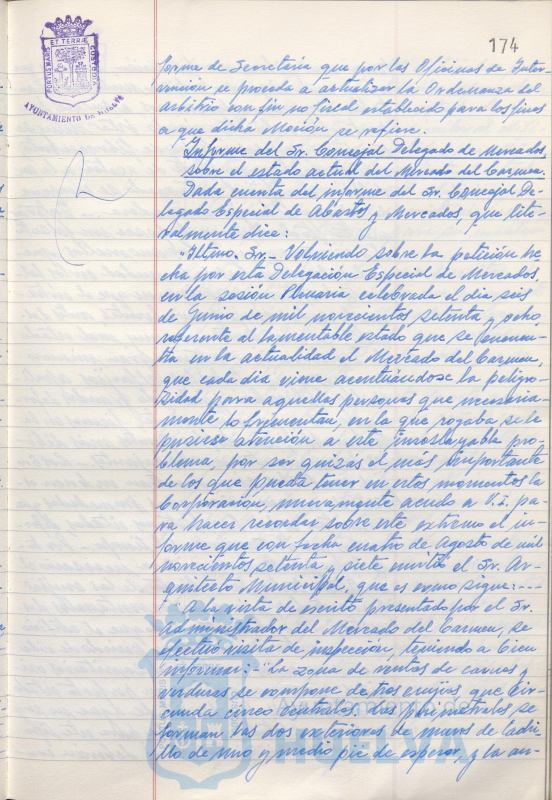 174
PORTUS MARIS ET TERRAE CUSTODIA
AYUNTAMIENTO DE HUELVA
forme de Secretaría que por las Oficinas de Inter-
vención se proceda a actualizar la Ordenanza del
arbitrio con fin no fiscal establecido para los fines
a que dicha Moción se refiere.
Informe del Sr. Concejal Delegado de Mercados
sobre el estado actual del Mercado del Carmen.
Dada cuenta del informe del Sr. Concejal De-
legado Especial de Abastos y Mercados, que lite-
ralmente dice:
"Iltmo. Sr.- Volviendo sobre la petición he-
cha por esta Delegación Especial de Mercados,
en la sesión Plenaria celebrada el día seis
de Junio de mil novecientos setenta y ocho,
referente al lamentable estado que se encuen-
tra en la actualidad el Mercado del Carmen,
que cada día viene acentuándose la peligro-
sidad para aquellas personas que necesaria-
mente lo frecuentan, en la que rogaba se le
pusiese atención a este insoslayable pro-
blema, por ser quizás el más importante
de los que pueda tener en estos momentos la
Corporación, nuevamente acudo a V.I. pa-
ra hacer recordar sobre este extremo el in-
forme que con fecha cuatro de Agosto de mil
novecientos setenta y siete emitió el Sr. Ar-
quitecto Municipal, que es como sigue:---
A la vista de escrito presentado por el Sr.
Administrador del Mercado del Carmen, se
efectuó visita de inspección, teniendo a bien
informar:-"La zona de ventas de carnes y
verduras se compone de tres crujías que cir-
cunda cinco centrales. Las perimetrales se
forman las dos exteriores de muros de ladri-
llo de uno y medio pie de espesor, y la an-
HUELVA